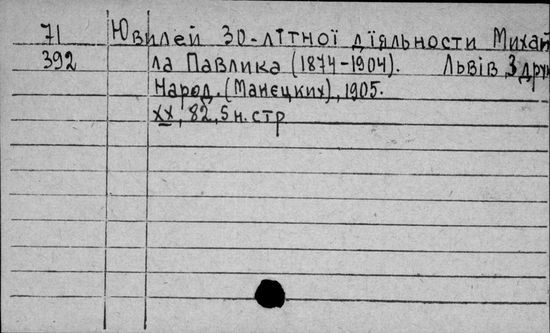 71 Ювилей 30-лїтної дїяльности Михай
392 ла Павлика (1874-1904). Львів, З друк
Народ. (Манєцких), 1905.
XX, 82, 5 н. стр